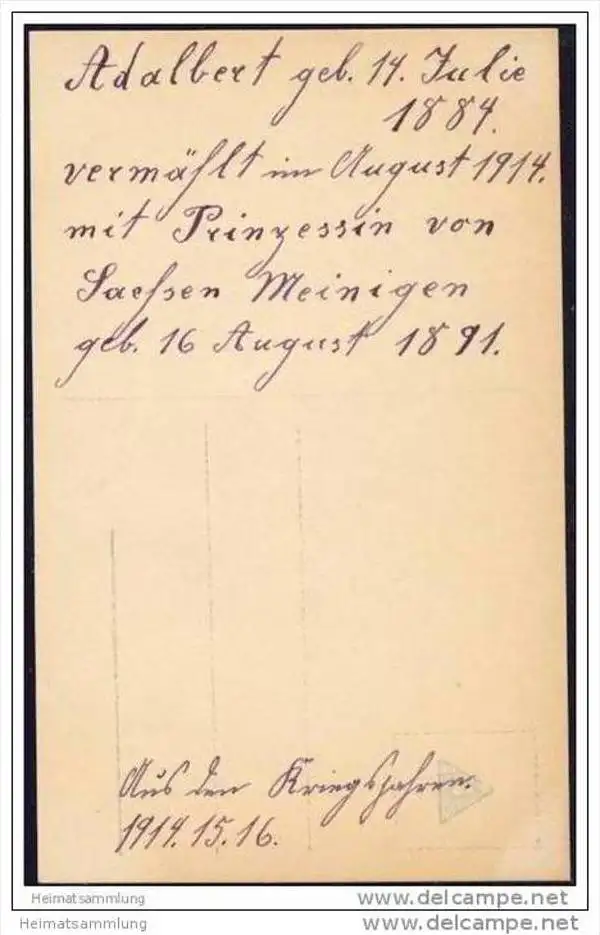 Adalbert geb. 14. Julie
1884.
vermählt im August 1914.
mit Prinzessin von
Sachsen Meinigen
geb. 16 August 1891.
Aus den Kriegsjahren.
1914. 15. 16.
Heimatsammlung
www.delcampe.net
Heimatsammlung
www.delcampe.net